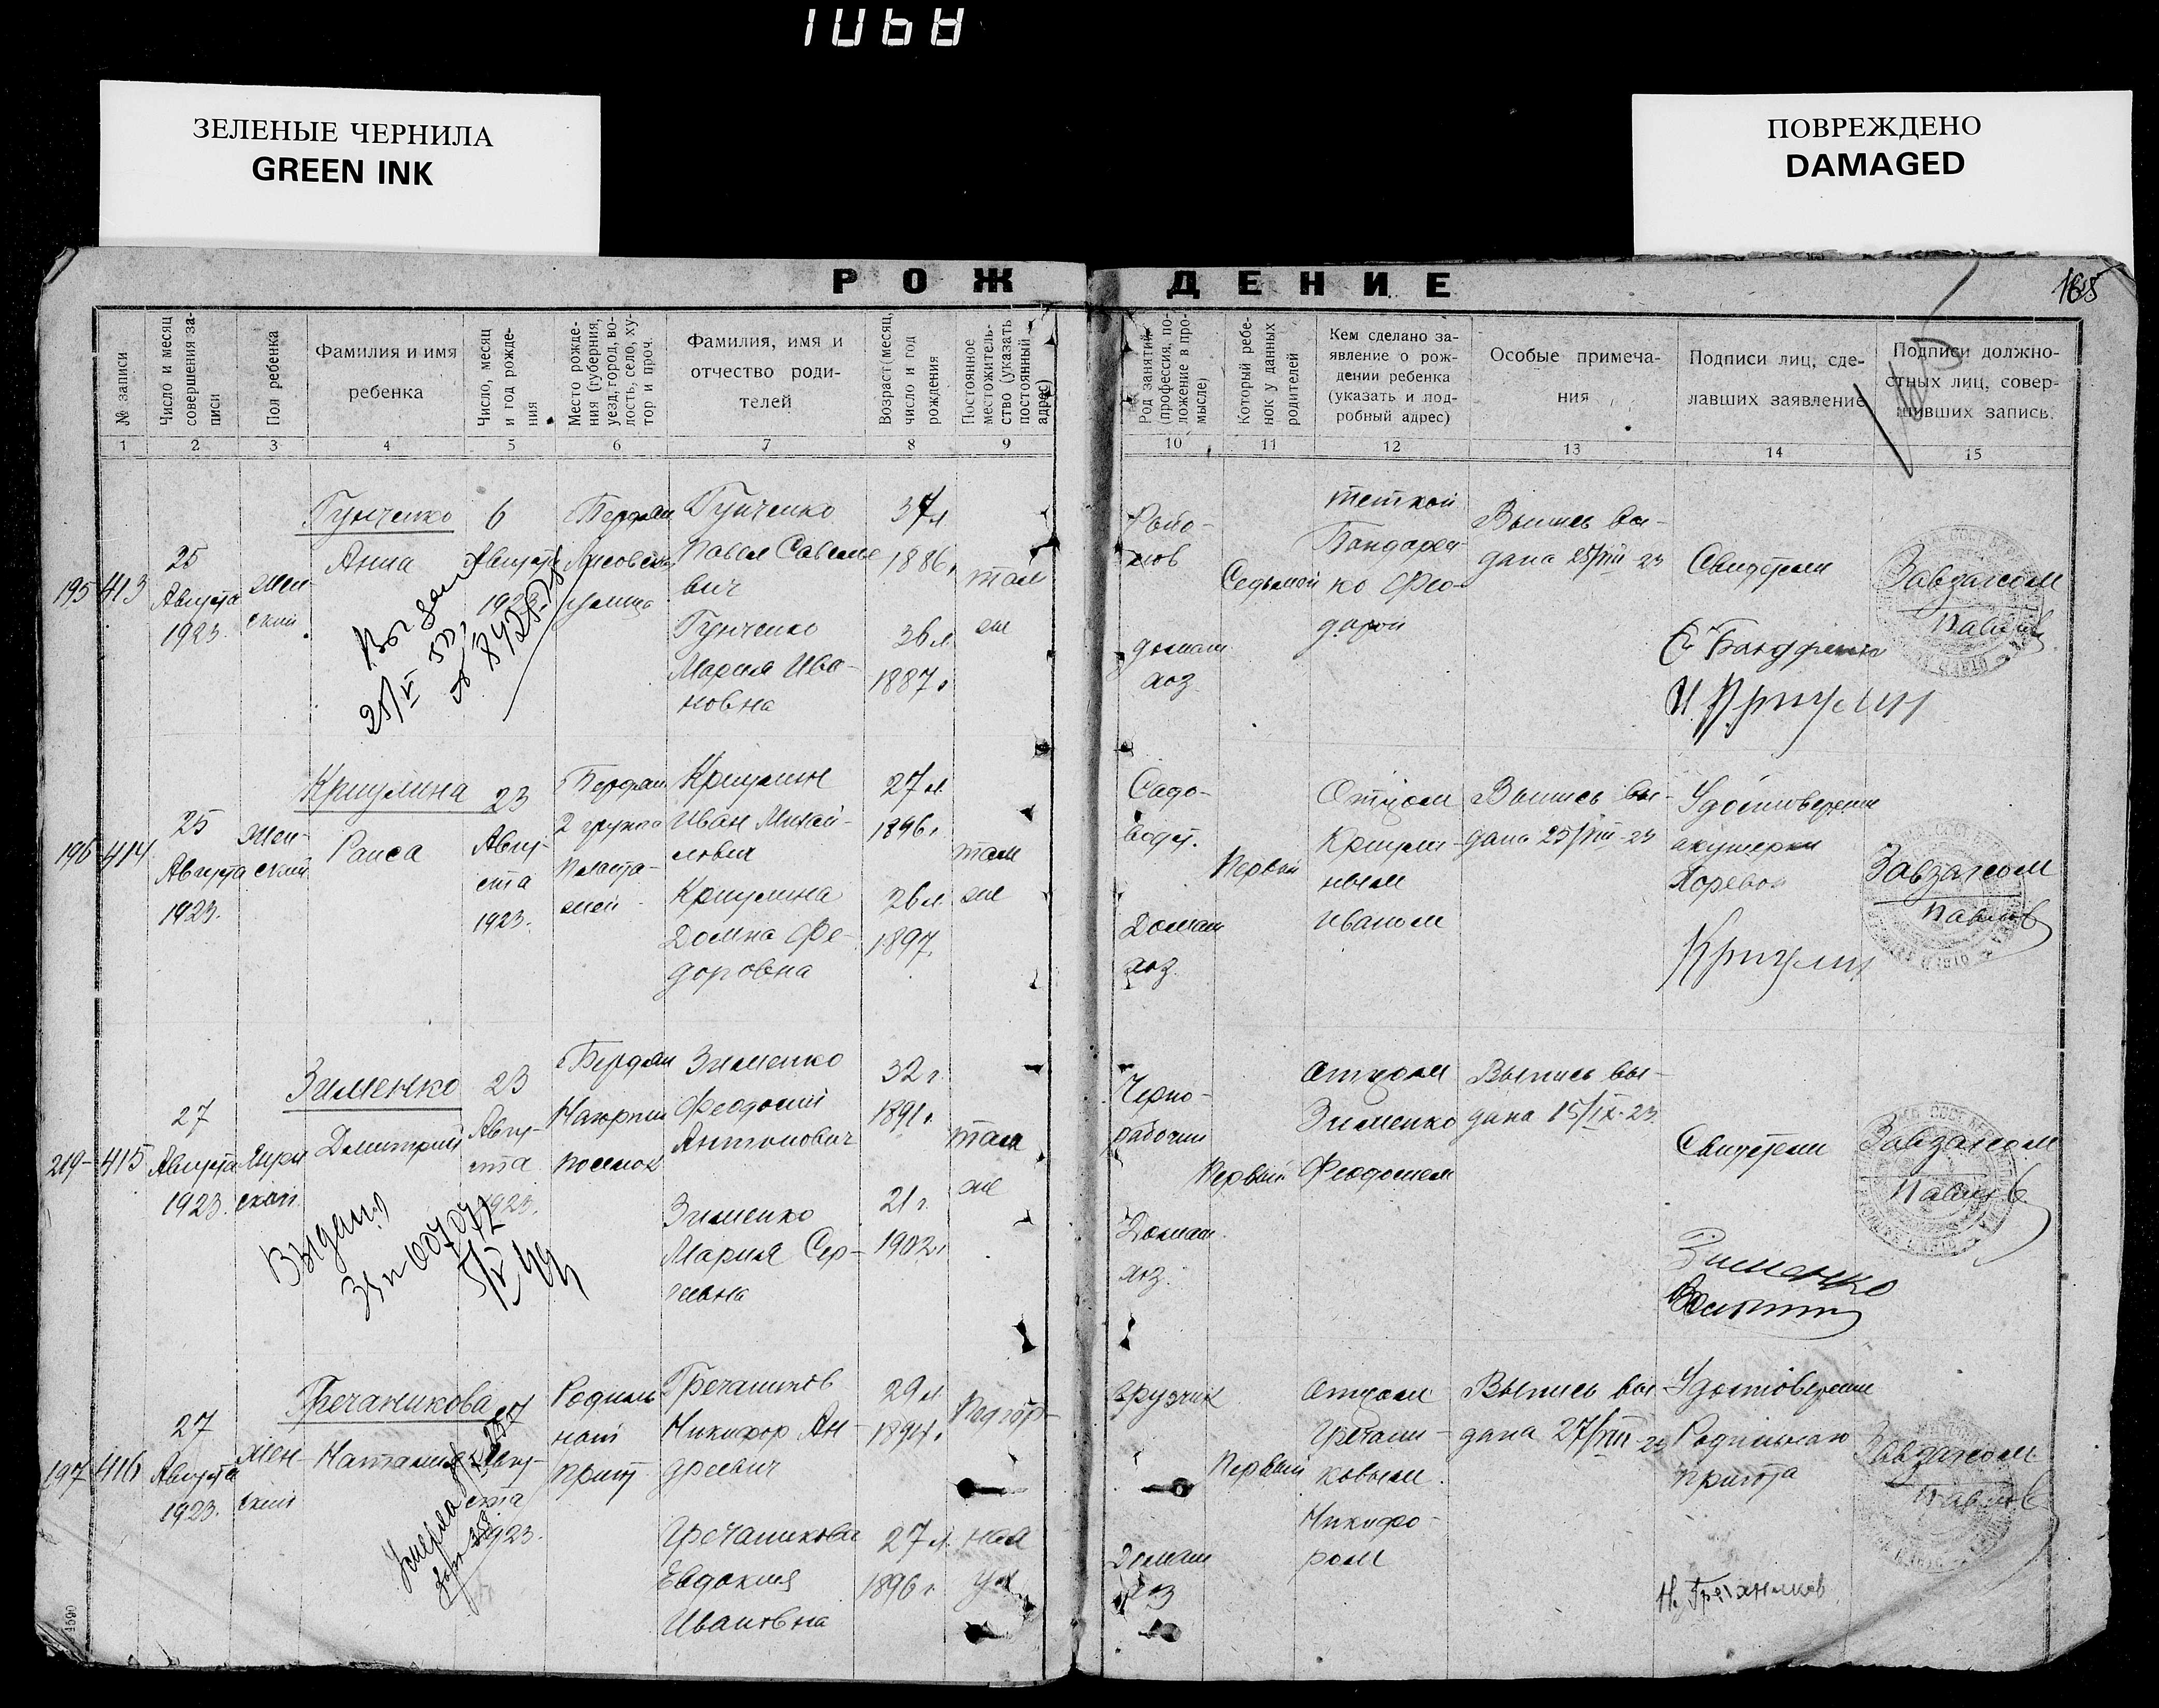 1068
ЗЕЛЕНЫЕ ЧЕРНИЛА
GREEN INK
ПОВРЕЖДЕНО
DAMAGED
РОЖДЕНИЕ
165
№ записи
Число и месяц совершения записи
Пол ребенка
Фамилия и имя
ребенка
Число, месяц и год рождения
Место рождения (губерния, уезд, город, волость, село, хутор и проч.
Фамилия, имя и
отчество роди-
телей
Возраст (месяц, число и год рождения
Постоянное местожительство (указать постоянный адрес)
Род занятий (профессия, положение в промысле)
Который ребенок у данных родителей
Кем сделано за-
явление о рож-
дении ребенка
(указать и под-
робный адрес)
Особые примеча-
ния
Подписи лиц, сде-
лавших заявление
Подписи должно-
стных лиц, совер-
шивших запись.
1 2 3 4 5 6 7 8 9 10 11 12 13 14 15
195 413
25
Августа
1923.
жен-
ский
Гунченко
Анна
6
Августа
1923.
Бердян
Лисовская
улица
Гунченко
Павел Савелье
вич
Гунченко
Мария Ива-
новна
37 л
1886.
36 л
1887.
там
же
домаш
хоз.
Седьмой
теткой
Бондарен-
ко Фео-
дорой
Выпись вы-
дана 25/VIII-23
Свидетели
Завзагсом
Павлов
196 414
25
Августа
1923.
жен-
ский
Криулина
Раиса
23
Авгу-
ста
1923.
Бердян
Криулин
Иван Михай-
лович
Криулина
Домна Фе-
доровна
27 л.
1896 г.
26 л.
1897.
там
же
Садо-
вод.
Домаш
хоз.
Первый
Отцом
Криули-
ным
Иваном
Выпись вы-
дана 25/VIII-23
Удостоверение
акушерки
Завзагсом
Павлов
Криулин
219- 415
27
Августа
1923.
Зименко
Димитрий
23
Авгу-
ста
1923.
Бердян
Нагорный
поселок
Зименко
Феодосий
Антонович
Зименко
Мария Сер-
геевна
32 г.
1891 г.
21 г.
1902 г.
там
же
Черно-
рабочий
Домаш.
хоз.
Первый
отцом
Зименко
Феодосием
Выпись вы-
дана 15/IX-23
Свидетели
Завзагсом
Павлов
Зименко
197 416
27
Августа
1923.
жен-
ский
Гречаникова
Наталия
Авгу-
ста
1923.
Родиль
ный
приют
Гречаников
Никифор Ан-
дреевич
Гречаникова
Евдокия
Ивановна
29 л.
1894.
27 л.
1896 г.
Нагор-
ная
ул.
грузчик
Домаш
хоз
Первый
отцом
Гречани-
ковым
Никифо-
ром
Выпись вы-
дана 27/VIII-23
Удостоверение
Родильного
приюта
Завзагсом
Павлов
Н. Гречаников
4590